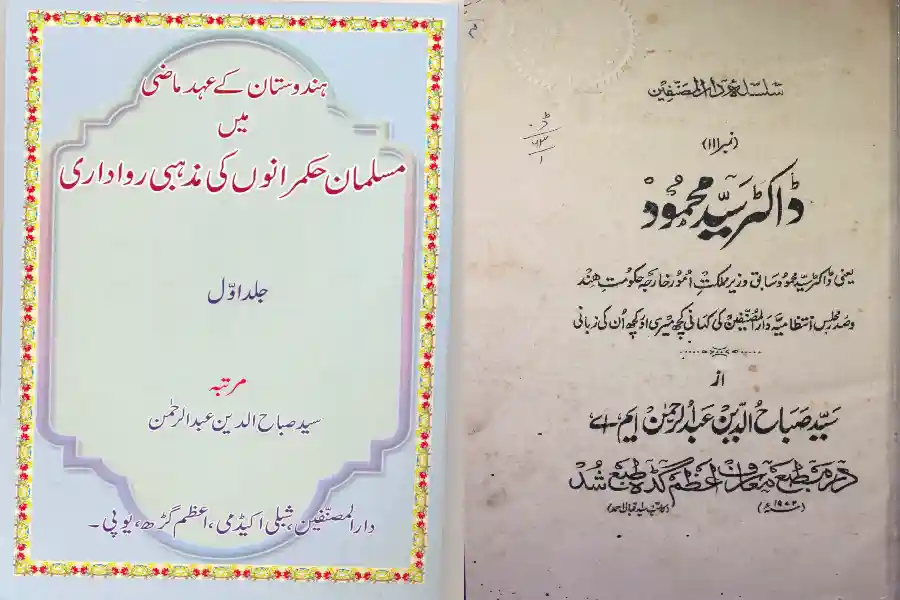 ہندوستان کے عہد ماضی
میں
مسلمان حکمرانوں کی مذہبی رواداری
جلد اوّل
مرتبہ
سید صباح الدین عبدالرحمٰن
دارالمصنّفین، شبلی اکیڈمی، اعظم گڑھ، یوپی۔
سلسلۂ دارالمصنفین
(نمبر ۱۱۱)
ڈاکٹر سیّد محمود
یعنی ڈاکٹر سیّد محمود سابق وزیر مملکت امور خارجہ حکومت ہند
و صدر مجلس انتظامیہ دارالمصنفین کی کہانی کچھ میری اور کچھ اُن کی زبانی
از
سیّد صباح الدین عبدالرحمٰن ایم اے
در مطبع معارف اعظم گڈہ طبع شُد